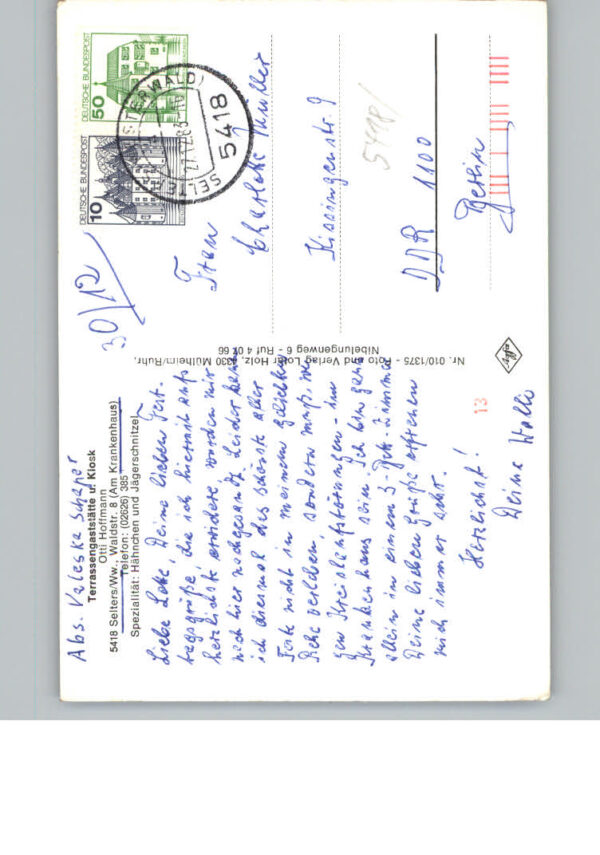 Abs. Valeska Schäfer
Terrassengaststätte u. Kiosk
Otti Hoffmann
5418 Selters/Ww., Waldstr. 8 (Am Krankenhaus)
Telefon: (02626) 385
Spezialität: Hähnchen und Jägerschnitzel
Liebe Lotte, Deine lieben Fest-
tagsgrüße, die ich hiermit aufs
herzlichste erwidere wurden mir
nach hier nachgesandt. Leider kann
ich diesmal das schönste aller
Feste nicht in meinem
Ruhe verleben, sondern muß, we-
gen Kreislaufstörungen - im
Krankenhaus sein. Ich bin ganz
allein in einem 3-Bett-Zimmer.
Deine lieben Grüße erfreuen
mich immer sehr.
Herzlichst!
Deine Walli
Nr. 010/1375 - Foto und Verlag Lothar Holz, 4330 Mülheim/Ruhr,
Nibelungenweg 6 - Ruf 4 07 66
Agfa
13
30/12
10
DEUTSCHE BUNDESPOST
50
DEUTSCHE BUNDESPOST
SELTERS (WESTERWALD)
5418
Frau
Charlotte Müller
Kissingenstr. 9
5418/
DDR 1100
Berlin